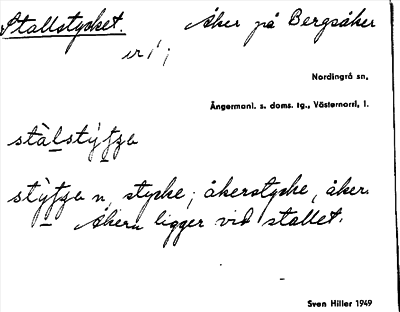 Stallstycket. Åker på Bergsåker
Nordingrå sn,
Ångermanl. s. doms. tg., Västernorrl. l.
stycke; åkerstycke, åker.
Åkern ligger vid stallet.
Sven Hiller 1949